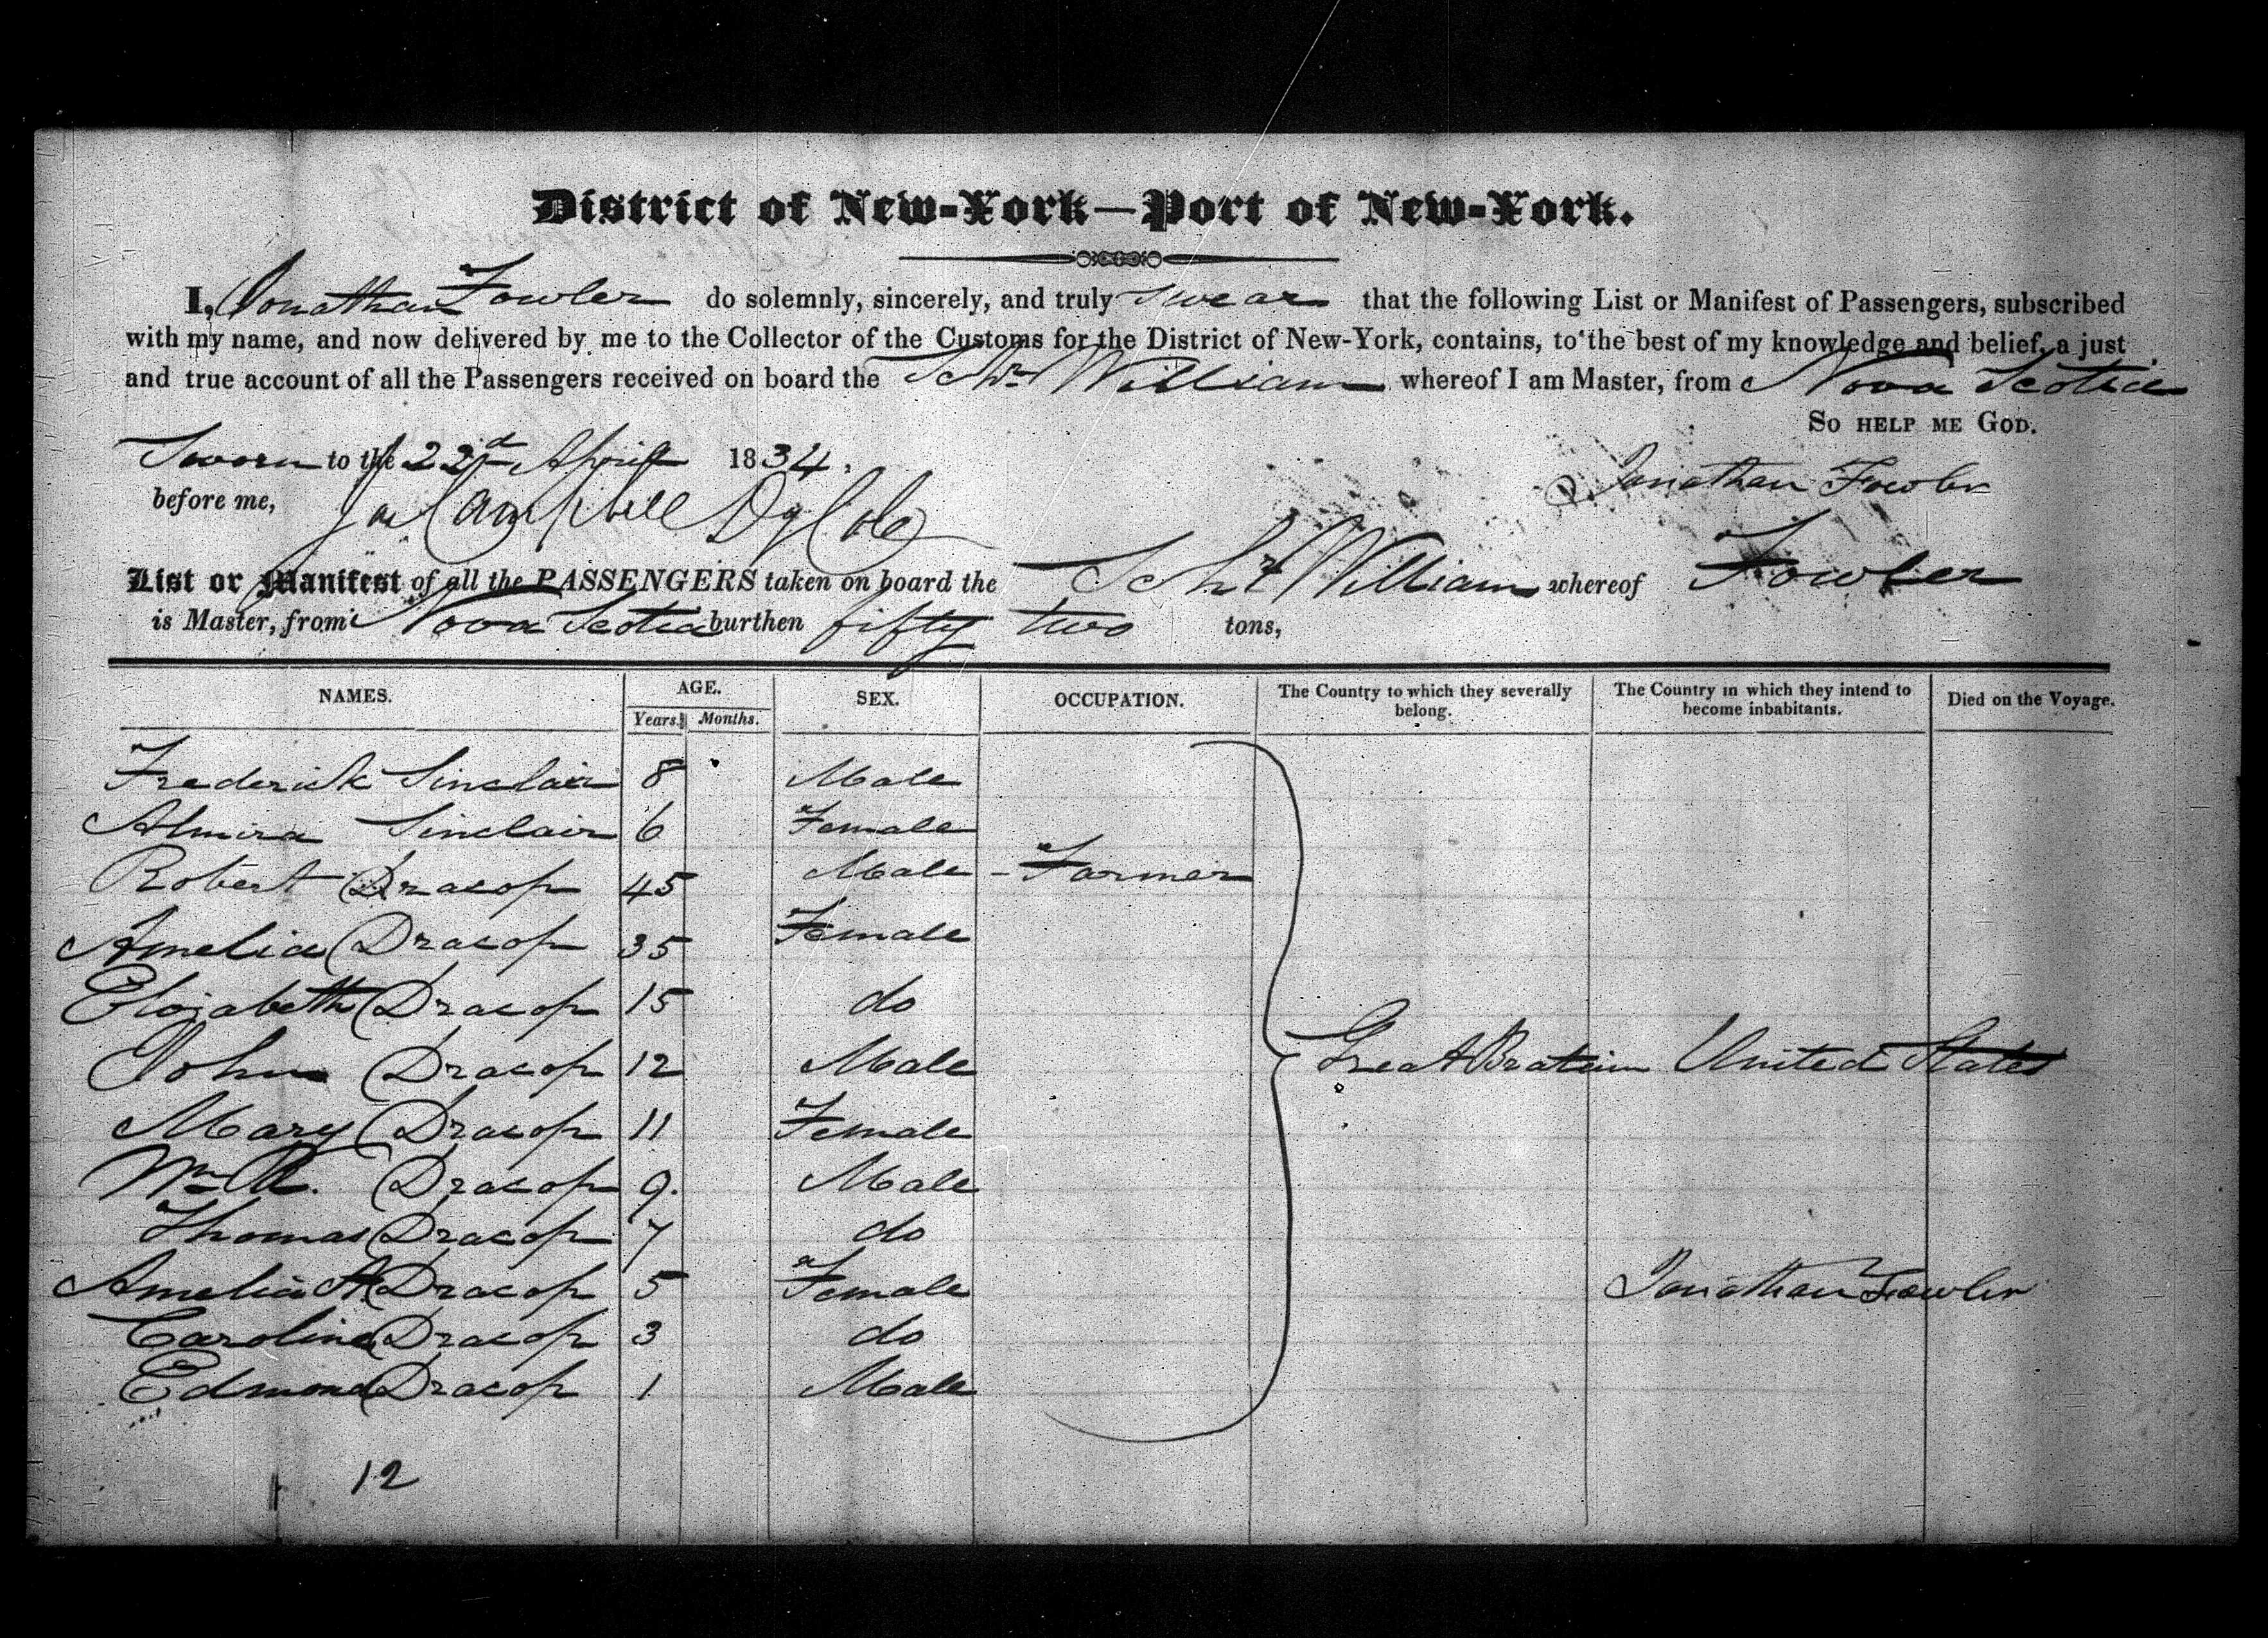 District of New-York—Port of New-York.
I, Jonathan Fowler do solemnly, sincerely, and truly swear that the following List or Manifest of Passengers, subscribed
with my name, and now delivered by me to the Collector of the Customs for the District of New-York, contains, to the best of my knowledge and belief, a just
and true account of all the Passengers received on board the Schr William whereof I am Master, from Nova Scotia
So help me God.
Sworn to the 22d April 1834.
before me, Campbell
Jonathan Fowler
List or Manifest of all the PASSENGERS taken on board the Schr William whereof Fowler
is Master, from Nova Scotia burthen fifty two tons,
NAMES. AGE. SEX. OCCUPATION. The Country to which they severally belong. The Country in which they intend to become inhabitants. Died on the Voyage.
Years. Months.
Frederick Sinclair 8 Male
Almira Sinclair 6 Female
Robert Dracop 45 Male - Farmer
Amelia Dracop 35 Female
Elizabeth Dracop 15 do
John Dracop 12 Male Great Bratain United States
Mary Dracop 11 Female
Wm R. Dracop 9. Male
Thomas Dracop 7 do
Amelia A. Dracop 5 Female Jonathan Fowler
Caroline Dracop 3 do
Edmond Dracop 1 Male
12